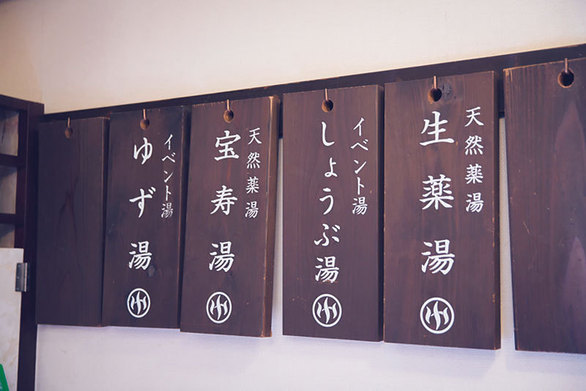 天然薬湯
生薬湯
イベント湯
しょうぶ湯
天然薬湯
宝寿湯
イベント湯
ゆず湯